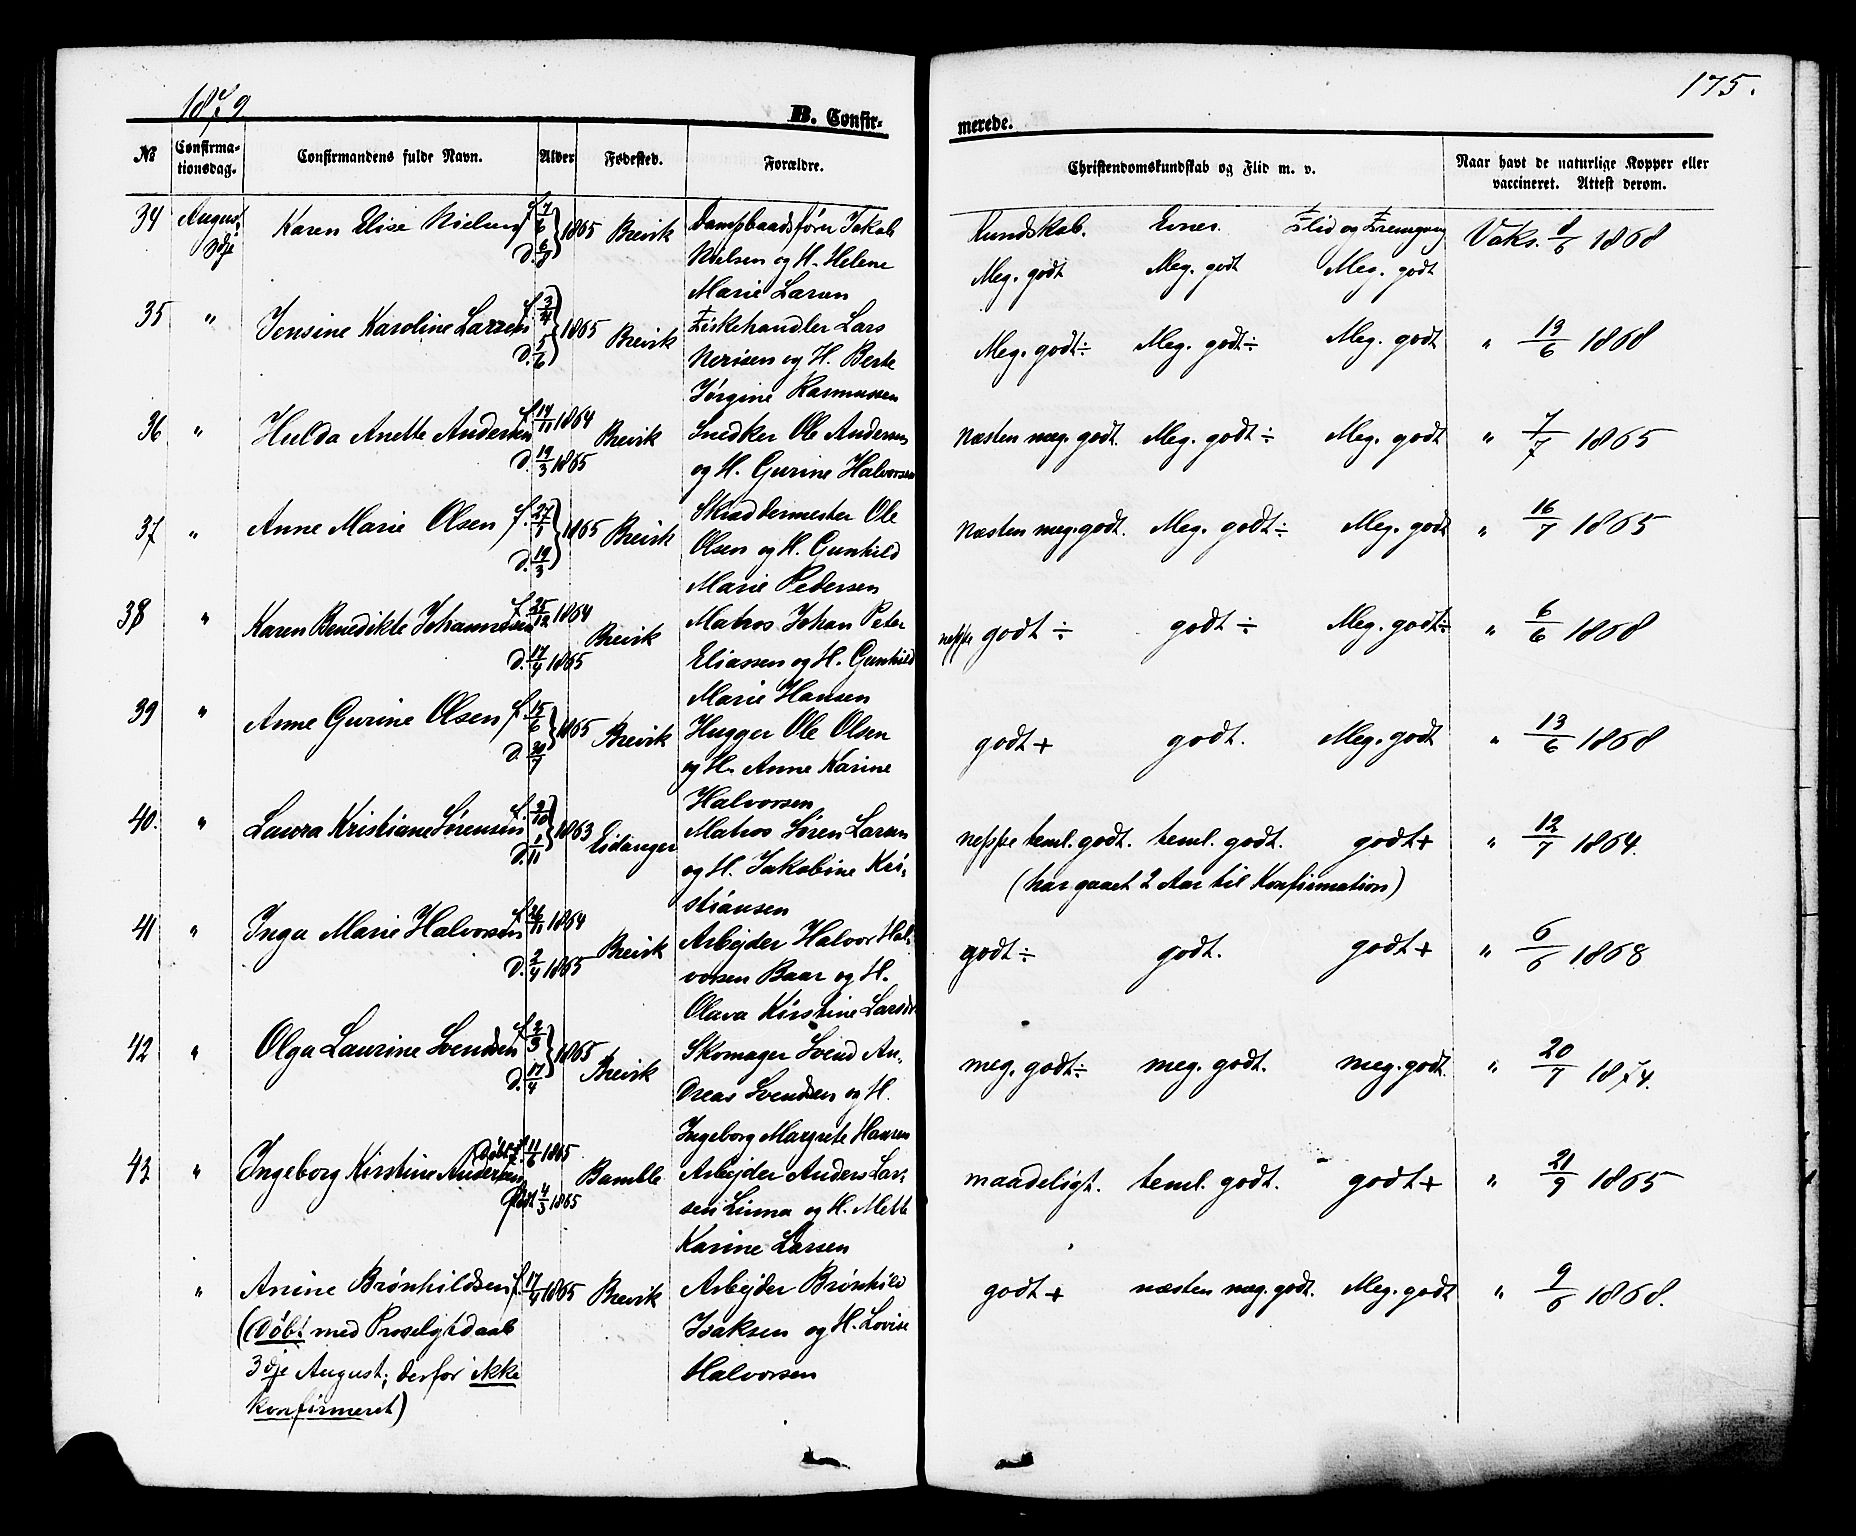 1879
175.
B. Confirmerede.
No Confirmationsdag. Confirmandens fulde Navn. Alder Fødested. Forældre. Christendomskundskab og Flid m. v. Naar havt de naturlige Kopper eller vaccineret. Attest derom.
Kundskab. Evner. Flid og Fremgang
34 August 3dje Karen Elise Nielsen f. 7/6 d. 6/9 1865 Brevik Dampbaadsfører Jakob
Nielsen og H. Helene
Marie Larsen
Meg. godt Meg. godt Meg. godt Vaks. 8/6 1868
35 " Jensine Karoline Larsen f. 3/4 d. 5/6 1865 Brevik Fiskehandler Lars
Nerisen og H. Berte
Jørgine Rasmussen
Meg. godt÷ Meg. godt÷ Meg. godt " 13/6 1868
36 " Hulda Anette Andersen f. 19/11 1864 d. 19/3 1865 Brevik Snedker Ole Andersen
og H. Gurine Halvorsen
Næsten meg. godt. Meg. godt÷ Meg. godt " 7/7 1865
37 " Anne Marie Olsen f. 27/1 d. 19/3 1865 Brevik Skræddermester Ole
Olsen og H. Gunhild
Marie Pedersen
Næsten meg. godt. Meg. godt÷ Meg. godt " 16/7 1865
38 " Karen Benedikte Johannesen f. 25/12 1864 d. 17/4 1865 Brevik Matros Johan Peter
Eliassen og H. Gunhild
Marie Hansen
neppe godt ÷ godt ÷ Meg. godt÷ " 6/6 1868
39 " Anne Gurine Olsen f. 15/6 d. 30/7 1865 Brevik Hugger Ole Olsen
og H. Anne Karine
Halvorsen
godt + godt. Meg. godt " 13/6 1868
40. " Laura Kristiane Sørensen f. 9/10 d. 1/11 1863 Eidanger Matros Søren Larsen
og H. Jakobine Kri-
stiansen
neppe teml. godt. teml. godt. godt + " 12/7 1864.
(har gaaet 2 Aar til Konfirmation)
41 " Inga Marie Halvorsen f. 26/11 1864 d. 2/4 1865 Brevik Arbejder Halvor Hal-
vorsen Baar og H.
Olava Kirstine Larsdr
godt÷ godt. godt + " 6/6 1868
42 " Olga Laurine Svendsen f. 2/3 d. 17/4 1865 Brevik Skomager Svend An-
dreas Svendsen og H.
Ingeborg Margrete Hansen
meg. godt÷ meg. godt. meg. godt. " 20/7 1874.
43 " Ingeborg Kirstine Andersen Døbt 11/6 1865 Født 4/3 1865 Bamble Arbejder Anders Lar-
sen Linna og H. Mette
Karine Larsen
maadeligt. teml. godt. godt + " 21/9 1865
" Anine Brønhildsen f. 17/4 1865 Brevik Arbejder Brønhild
Isaksen og H. Lovise
Halvorsen
godt + næsten meg. godt. Meg. godt " 9/6 1868.
(Døbt med Proselytdaab
3dje August; derfor ikke
konfirmeret)